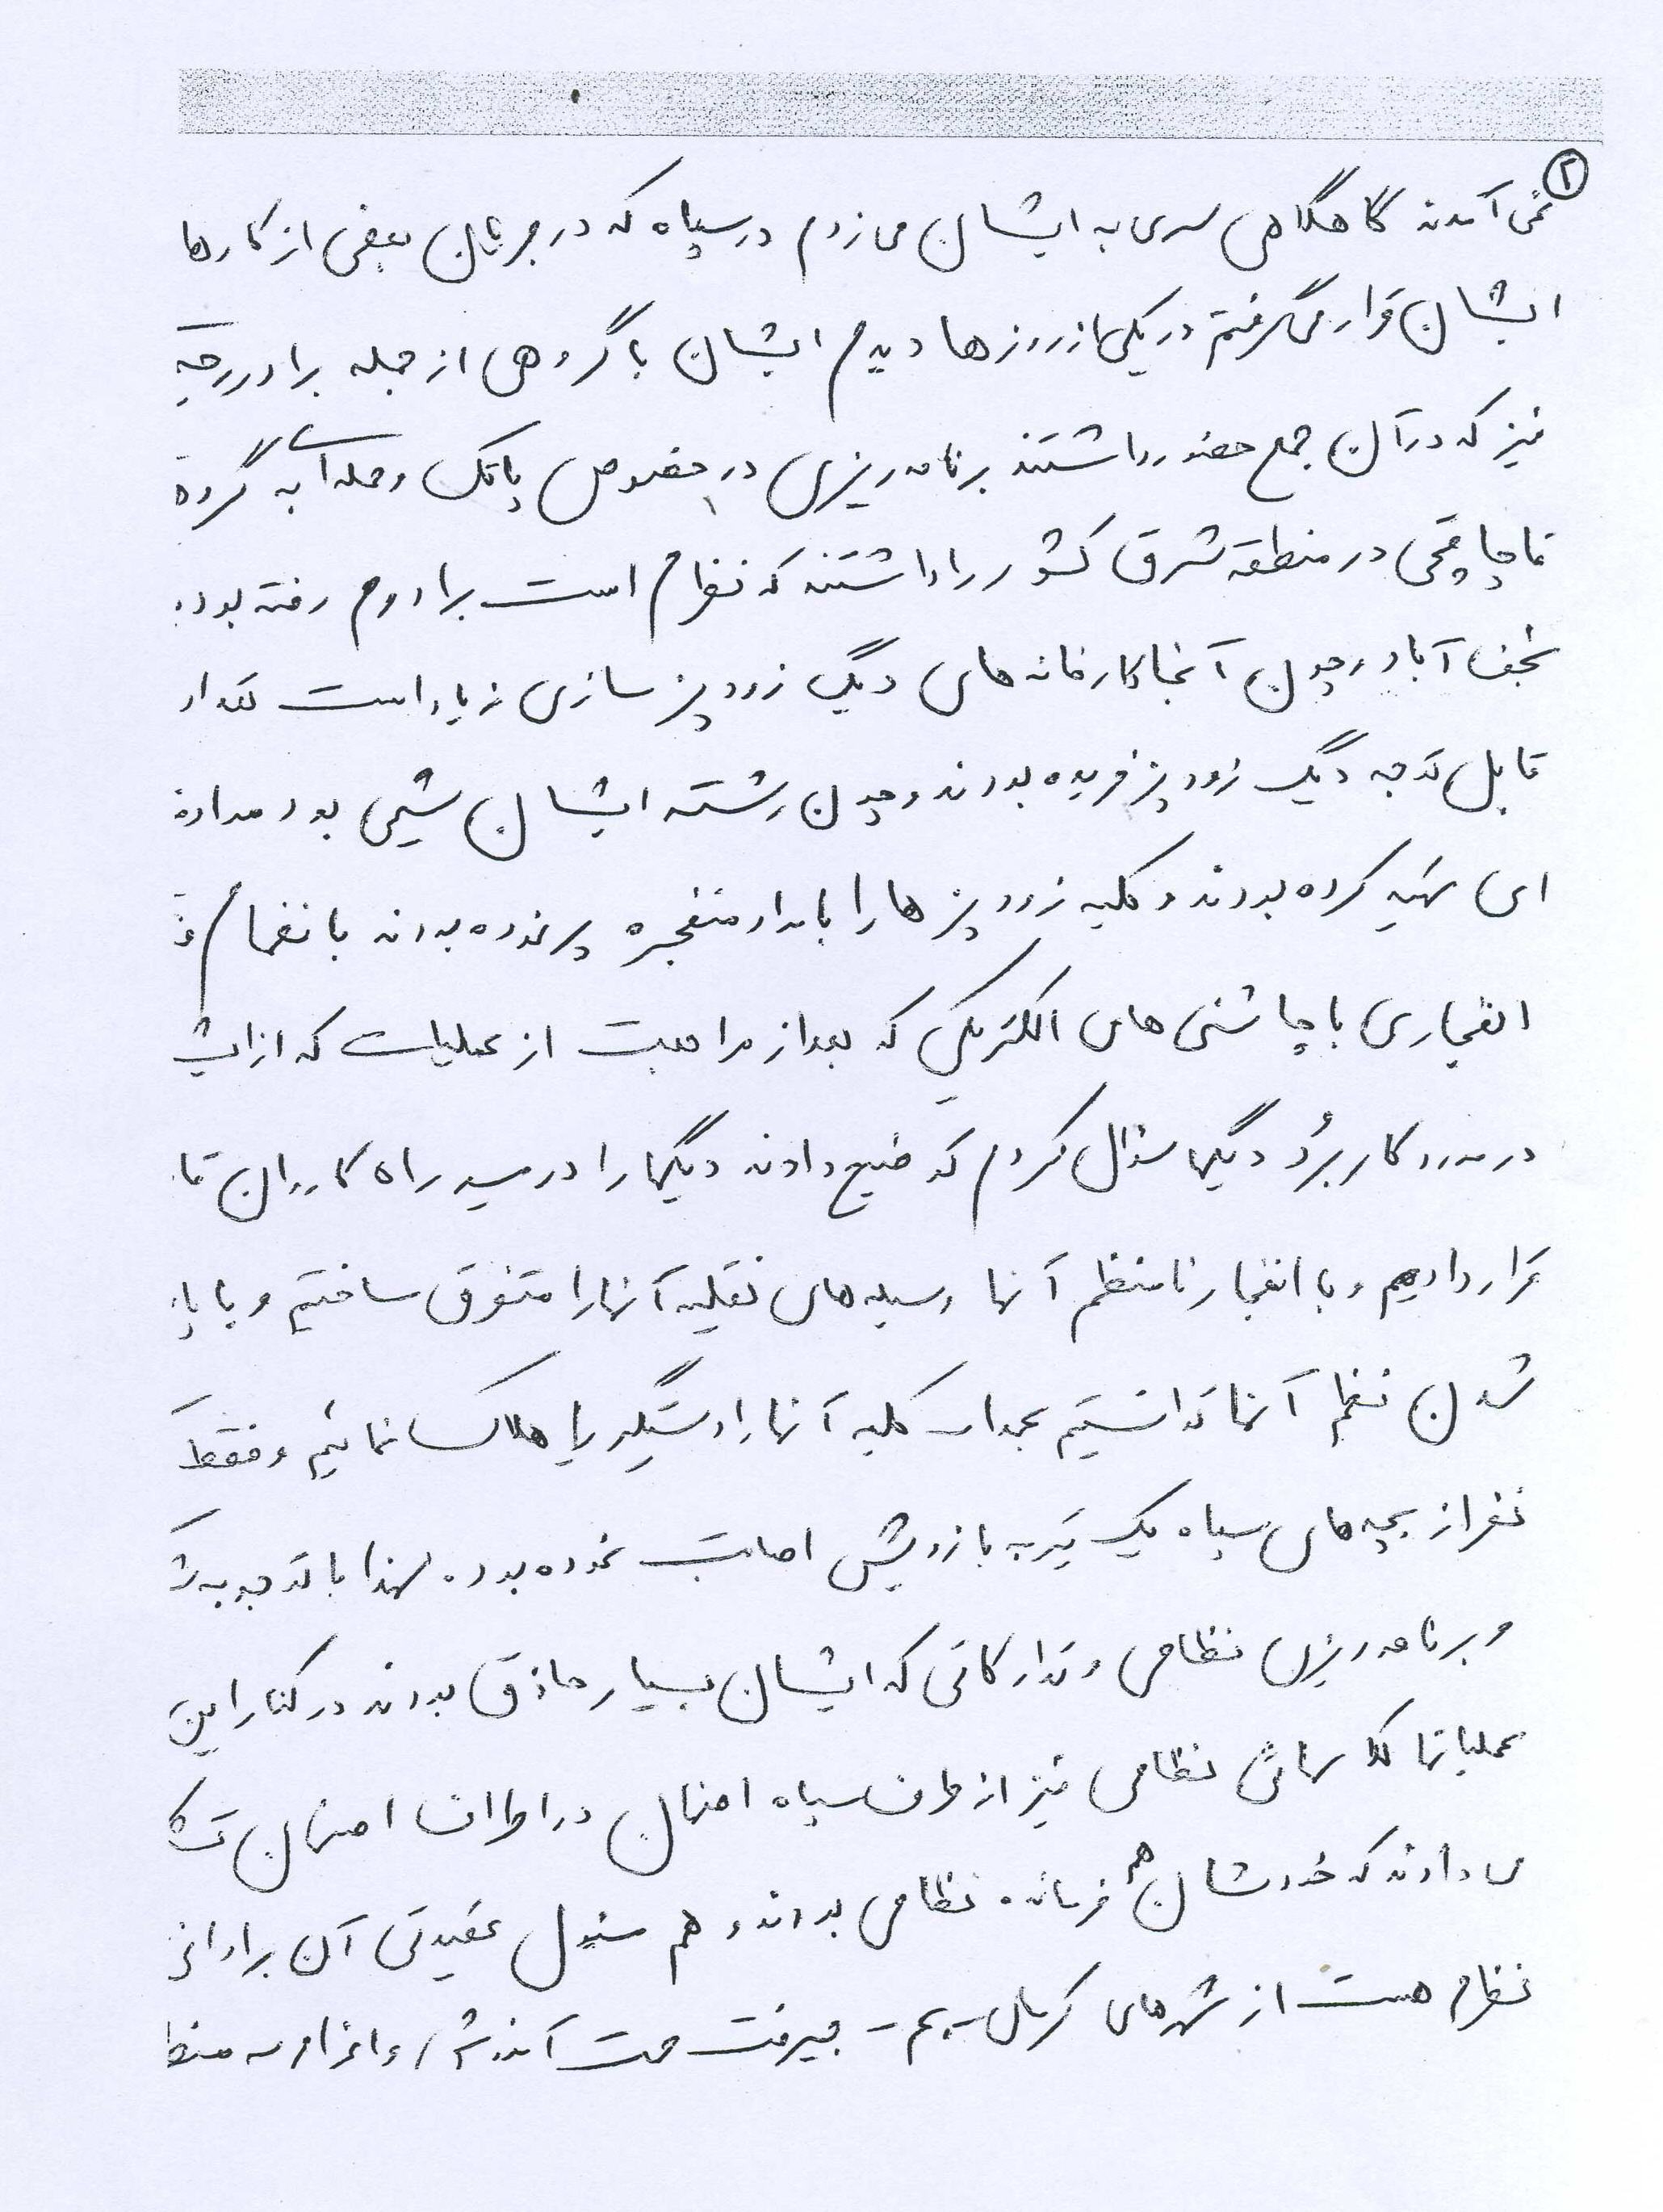 ۲
نمی آمدند گاهگاهی سری به ایشان می زدم در سپاه که در جریان بعضی از کارها
ایشان قرار می گرفتم در یکی از روزها دیدم ایشان با گروهی از جمله برادر
نیز که در آن جمع حضور داشتند برنامه ریزی در خصوص پاتک و حمله ای به گروه
قاچاقچی در منطقه شرق کشور را داشتند که نظرم است برادرم رفته بود
نجف آباد و چون آنجا کارخانه های دیگ زودپز سازی زیاد است تعداد
قابل توجه دیگ زودپز خریده بودند و چون رشته ایشان شیمی بود مواد
ای تهیه کرده بودند و کلیه زودپز ها را با مواد منفجره پر نموده بودند با انضمام
انفجاری با چاشنی های الکتریکی که بعد از مراجعت از عملیات که از
در مورد کاربرد دیگها سئوال کردم توضیح دادند دیگها را در مسیر راه کاروان
قرار دادیم و با انفجار نامنظم آنها وسیله های نقلیه آنها را متفرق ساختیم و با
شدن نظم آنها توانستیم بحمدا... کلیه آنها را دستگیر یا هلاک نمائیم و فقط
نفر از بچه های سپاه یک تیر به بازویش اصابت نموده بود. لهذا با توجه به
و برنامه ریزی نظامی و تدارکاتی که ایشان بسیار حاذق بودند در کنار این
عملیاتها کلاسهائی نظامی نیز از طرف سپاه اصفهان در اطراف اصفهان
می دادند که خودشان هم فرمانده نظامی بودند و هم مسئول عقیدتی آن برادران
نظرم هست از شهرهای کرمان - بم - جیرفت جهت آموزش و اعزام به